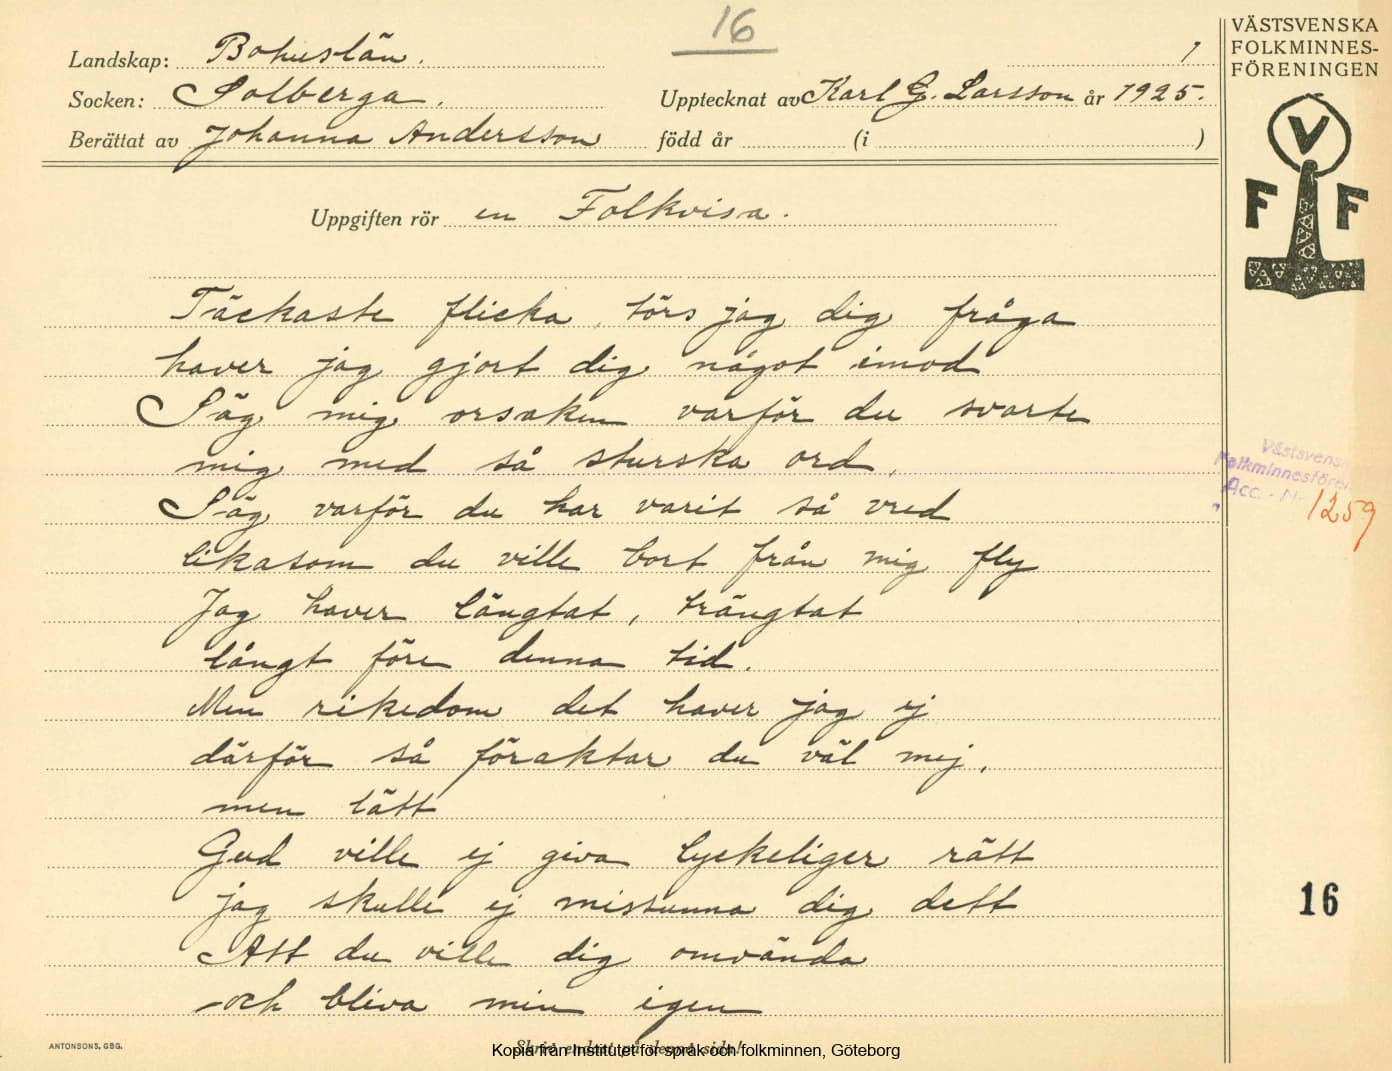 16
Landskap: Bohuslän.
1
Socken: Solberga.
Upptecknat av Karl G. Larsson år 1925.
Berättat av Johanna Andersson
född år (i )
Uppgiften rör en Folkvisa.
Täckaste flicka törs jag dig fråga
haver jag gjort dig något imod
Säg mig orsaken varför du svarte
mig med så sturska ord,
Säg varför du har varit så vred
likasom du ville bort från mig fly
Jag haver längtat, trängtat
långt före denna tid.
Men rikedom det haver jag ej
därför så föraktar du väl mej,
men lätt
Gud ville ej giva lyckeliger rätt
jag skulle ej missunna dig dett
Att du ville dig omvända
och bliva min igen
ANTONSONS, GBG.
Skriv endast på denna sida!
Kopia från Institutet för språk och folkminnen, Göteborg
VÄSTSVENSKA
FOLKMINNES-
FÖRENINGEN
V
F F
Västsvens
Folkminnesfören
Acc. - Nr 1259
16